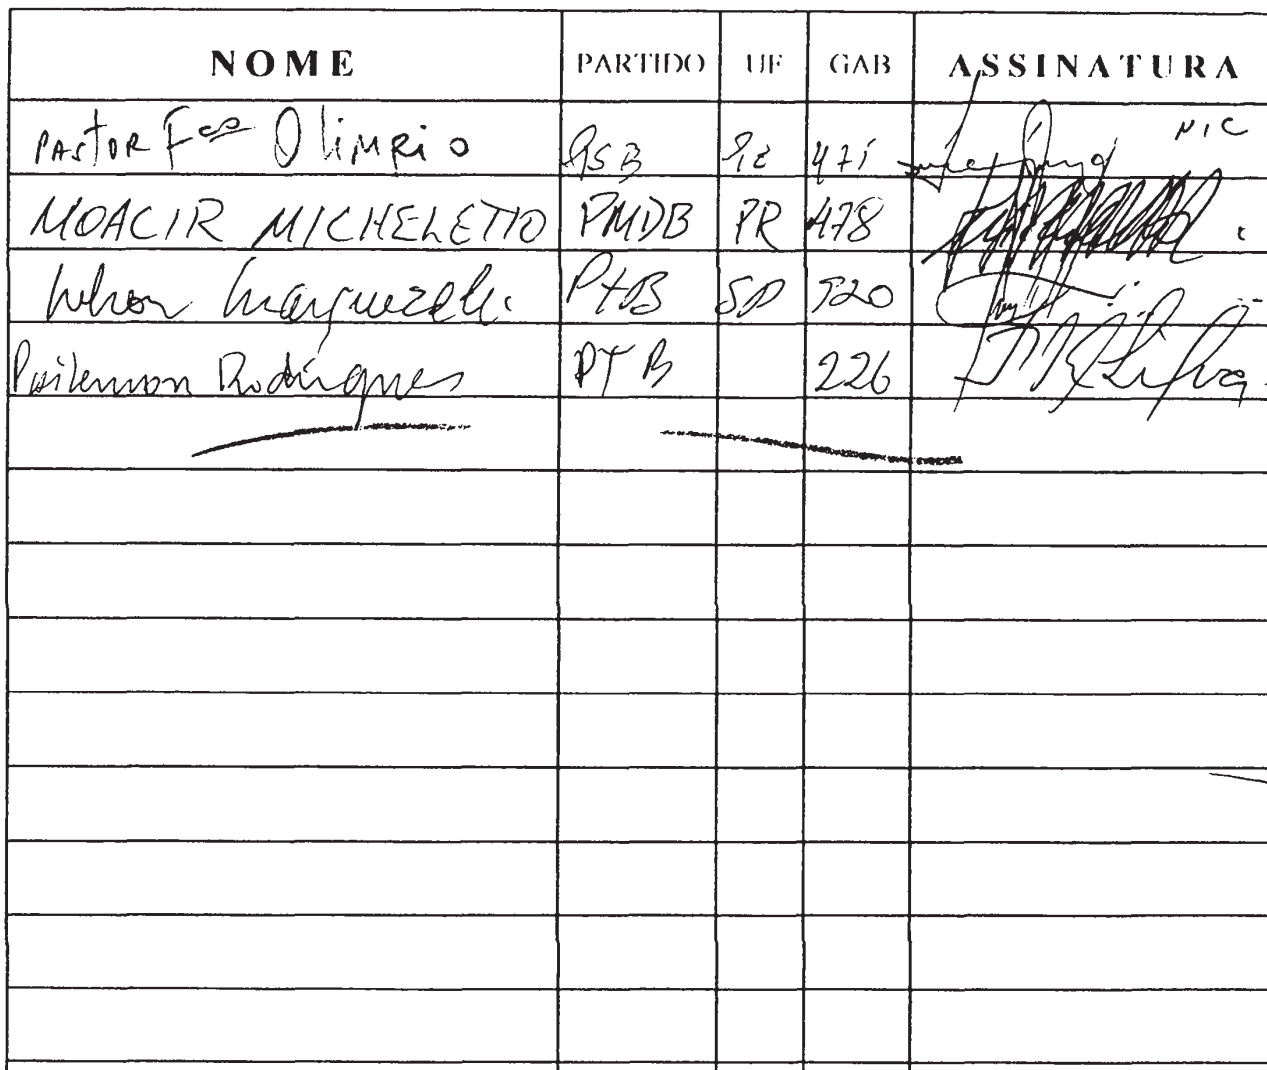 NOME PARTIDO UF GAB ASSINATURA
PASTOR Fco Olimpio PSB PE 471 NIC
MOACIR MICHELETTO PMDB PR 478
Nelson Marquezelli PTB SP 920
Philemon Rodrigues PTB 226